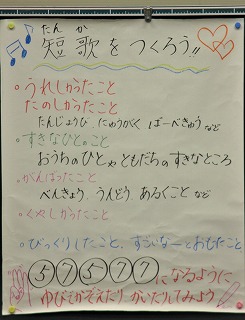 たんか
短歌をつくろう!!
・うれしかったこと
たのしかったこと
たんじょうび にゅうがく ばーべきゅう など
・すきなひとのこと
おうちのひとやともだちのすきなところ
・がんばったこと
べんきょう、うんどう、あるくこと など
・くやしかったこと
・びっくりしたこと、すごいなーとおもたこと
⑤⑦⑤⑦⑦になるように
ゆびでかぞえたり かいたりしてみよう